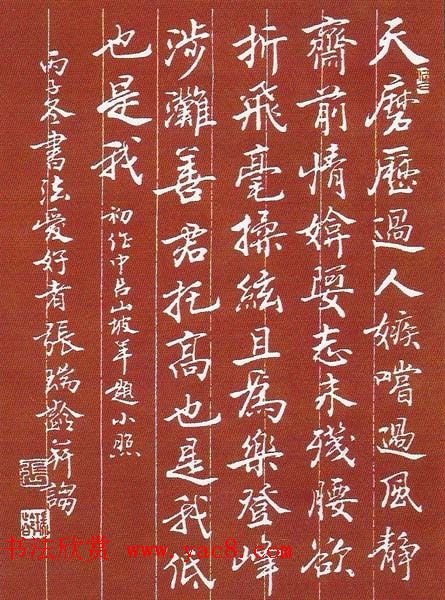 天磨歷過人嫉嚐過風靜
齋前情志未殘腰欲
折飛毫操絃且為樂登峰
涉灘善君托高也是我低
也是我
初作中呂山坡羊題小照
丙子冬書法愛好者張瑞齡并謅
張
书法欣赏 www.yac8.com